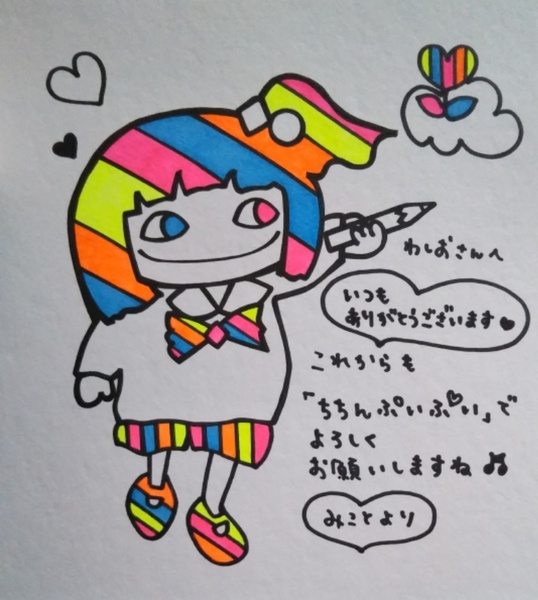 わしおさんへ
いつも
ありがとうございます♥
これからも
「ちちんぷいぷい」で
よろしく
お願いしますね♫
みことより